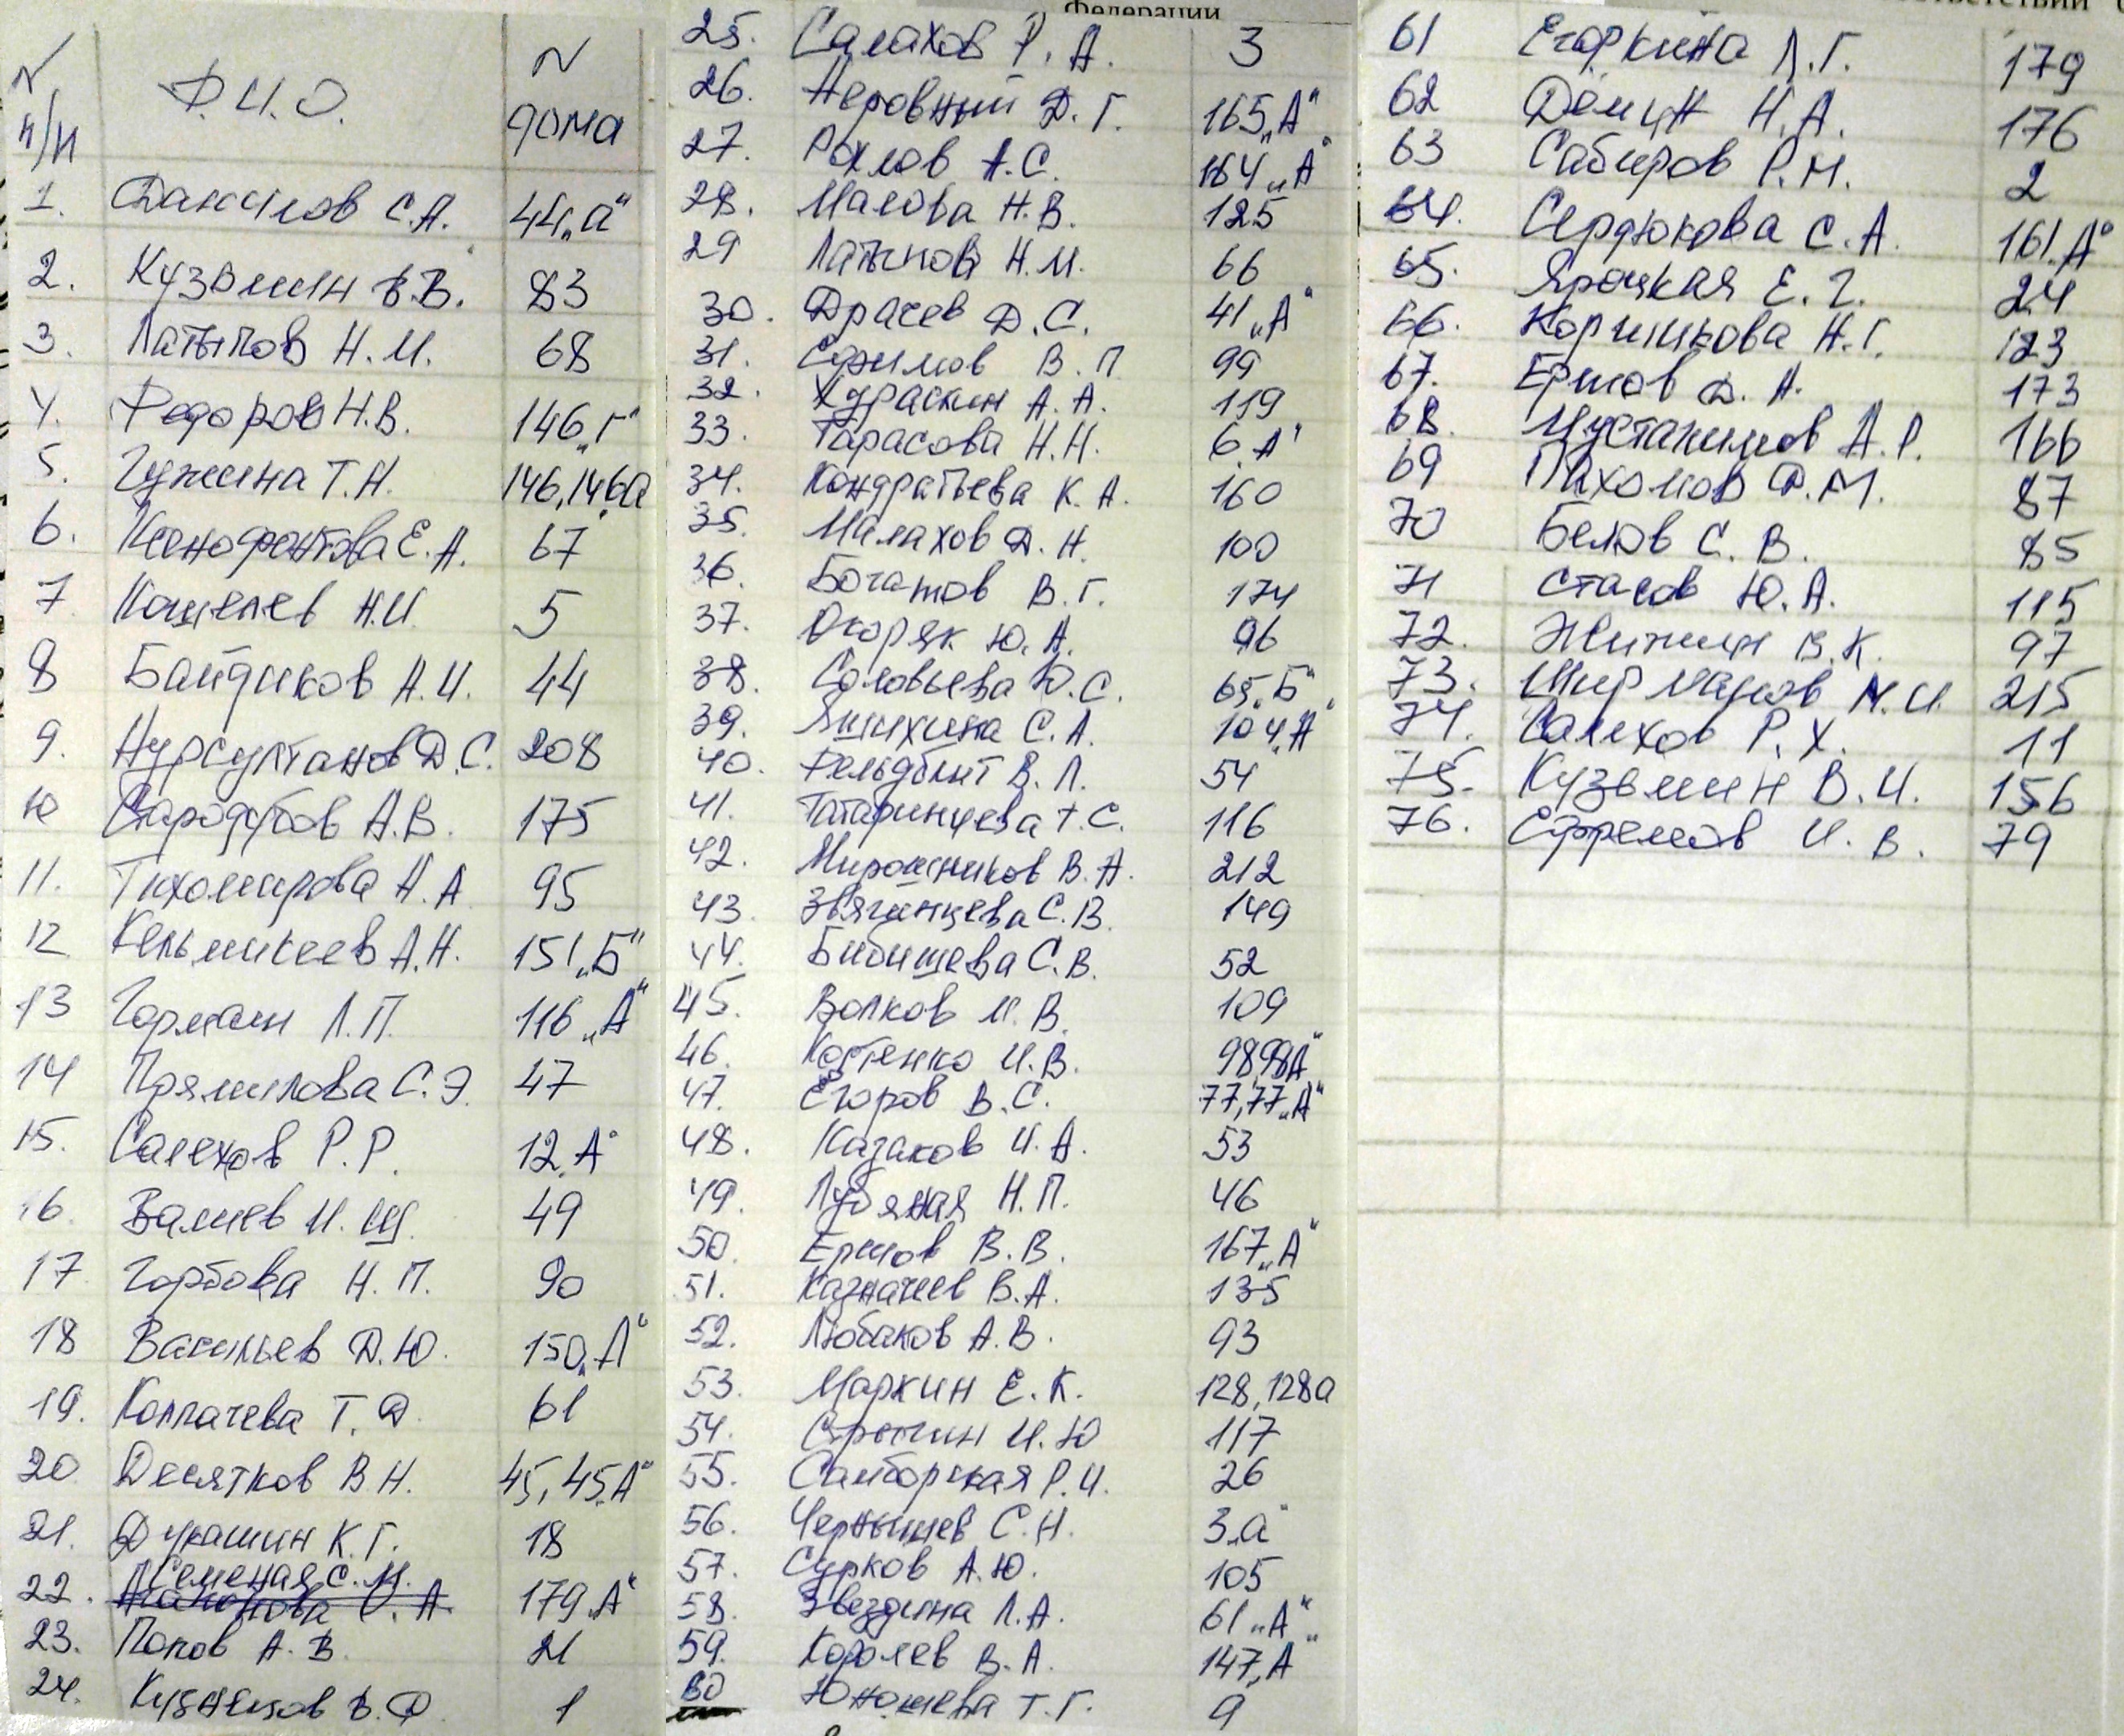 N п/п Ф.И.О. N дома
1. Данилов С.А. 44„а"
2. Кузьмин В.В. 83
3. Латыпов Н.И. 68
4. Федоров Н.В. 146„г"
5. Гужина Т.Н. 146,146а
6. Ксенофонтова Е.А. 67
7 Кошелев Н.И. 5
8 Байдиков А.И. 44
9. Нурсултанов Д.С. 208
10 Стародубов А.В. 175
11. Тихомирова Н.А 95
12 Кельмикеев А.Н. 151„Б"
13 Горман Л.П. 116„А"
14 Прямилова С.Э. 47
15. Салехов Р.Р. 12„А"
16. Валиев И.Щ. 49
17 Горбова Н.П. 90
18 Васильев Д.Ю. 150„А"
19. Колпачева Т.Ф. 61
20 Десятков В Н. 45, 45„А"
21. Дукашин К.Г. 18
22. Семеная С.И. 179„А"
23. Попов А.В. 21
24. Кузнецов В.Ф 1
Федерации
25. Салахов Р.А. 3
26. Неровный Д.Г. 165„А"
27. Рохлов А.С. 164„А"
28. Малова Н.В. 125
29 Латыпов Н.И. 66
30. Драчев Д.С. 41„А"
31. Ефимов В.П 99
32. Кураскин А.А. 119
33. Тарасова Н.Н. 6„А"
34. Кондратьева К.А. 160
35. Малахов Д.Н. 100
36. Богатов В.Г. 174
37. Окоряк Ю.А. 96
38. Соловьева Ю.С. 65„Б"
39. Яшихина С.А. 104„А"
40. Фельдблит В.Л. 54
41. Татаринцева Т.С. 116
42. Мирошников В.А. 212
43. Звягинцева С.В. 149
44. Бибишева С.В. 52
45. Волков И.В. 109
46. Костенко И.В. 98 98А"
47. Егоров В.С. 77,77„А"
48. Казаков И.А. 53
49. Лубяная Н.П. 46
50. Ершов В.В. 167„А"
51. Казначеев В.А. 135
52. Любаков А.В. 93
53. Маркин Е.К. 128,128а
54. И.Ю 117
55. Самборская Р.И. 26
56. Чернышев С.Н. 3„а"
57. Сурков А.Ю. 105
58. Звездина Л.А. 61„А"
59. Королев В.А. 147„А"
60 Юношева Т.Г. 9
61 Егоркина Л.Г. 179
62 Дёмин Н.А. 176
63 Сабиров Р.М. 2
64. Сердюкова С.А. 161„А"
65. Яроцкая Е.Г. 24
66. Коршикова Н.Г. 123
67. Ершов Д.А. 173
68. Мустакимов А.Р. 166
69 Пахомов Д.М. 87
70 Белов С.В. 85
71 Стасов Ю.А. 115
72. Житин В.К. 97
73. Ширманов М.И. 215
74. Салехов Р.Х. 11
75. Кузьмин В.И. 156
76. Ефремов И.В. 79